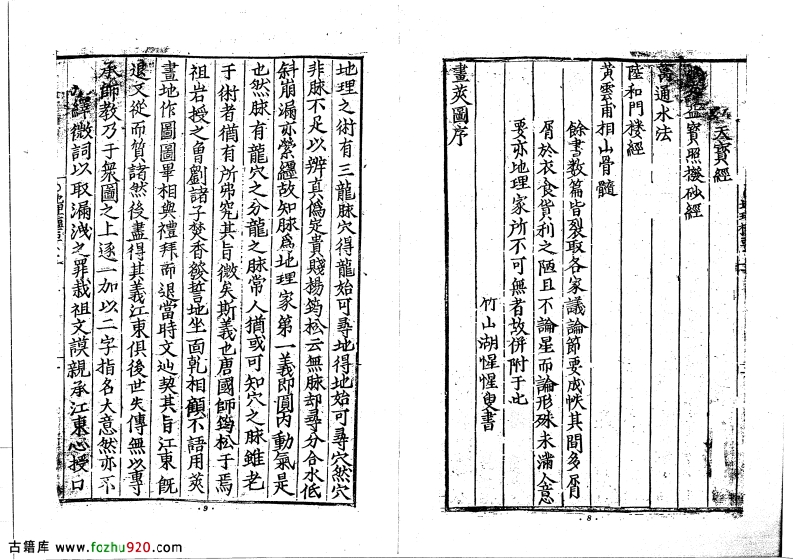 天寶經
寶照撥砂經
萬通水法
陸和門楼經
黃雲甫相山骨髓
餘書数篇皆裂取各家議論節要成帙其間多屑
屑於衣食貨利之陋且不論星而論形殊未滿人意
要亦地理家所不可無者故併附于此
竹山湖惺惺叟書
畫莢圖序
·8·
地理之術有三龍脉穴得龍始可尋地得地始可尋穴然穴
非脉不足以辨真偽定貴賤楊筠松云無脉却尋分合水低
斜崩漏亦縈纒故知脉爲地理家第一義即圓内動氣是
也然脉有龍穴之分龍之脉常人猶或可知穴之脉雖老
于術者猶有所弗究其旨微矣斯義也唐國師筠松于焉
祖岩授之曾劉諸子焚香發誓地坐面乾相顧不語用莢
畫地作圖圖畢相與禮拜而退當時文辿契其旨江東既
退又從而質諸然後盡得其義江東俱後世失傳無以專
承師教乃于衆圖之上逐一加以二字指名大意然亦不
緯微詞以取漏洩之罪哉祖文謨親承江東心授口
·9·
古籍库 www.fozhu920.com